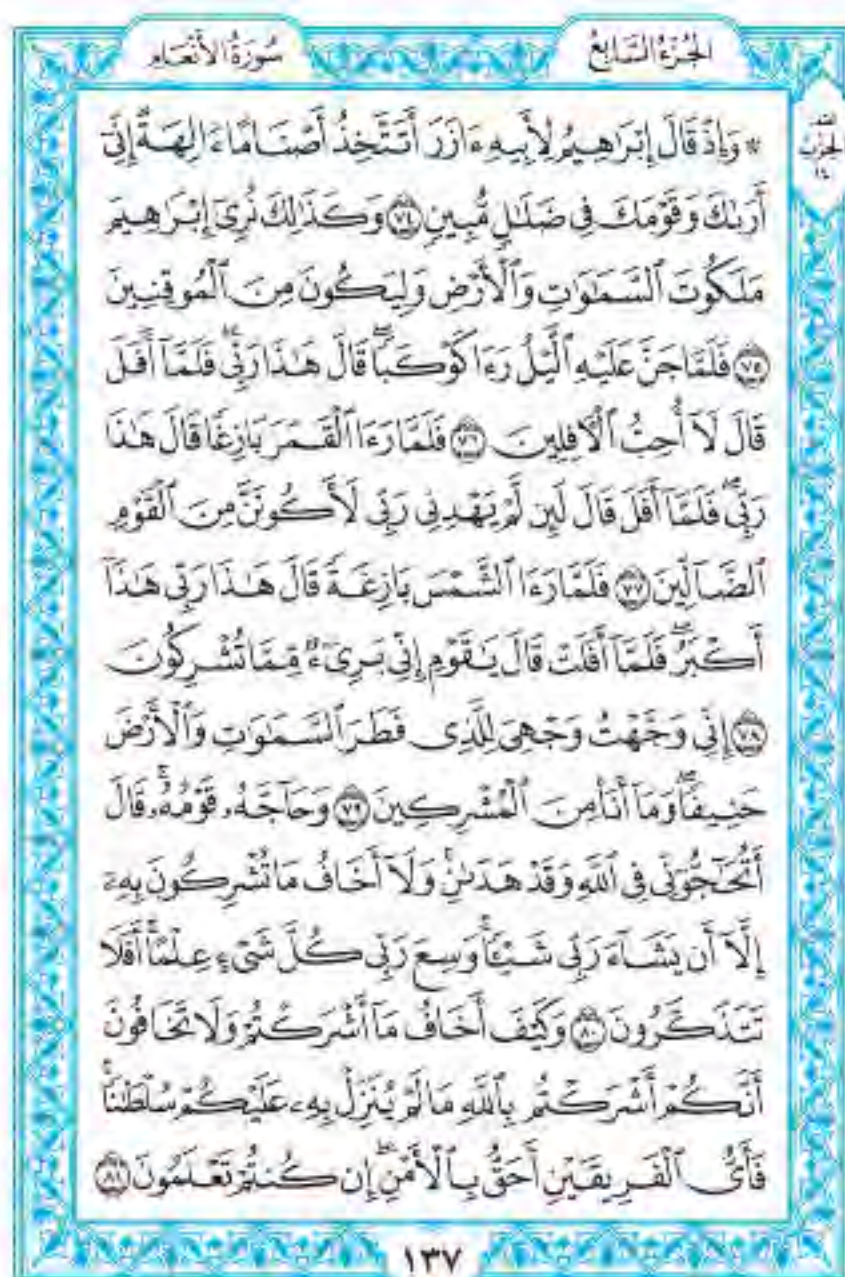 الجزء السابع
سورة الأنعام
الحزب
١٤
۞ وَإِذْ قَالَ إِبْرَٰهِيمُ لِأَبِيهِ ءَازَرَ أَتَتَّخِذُ أَصْنَامًا ءَالِهَةً إِنِّىٓ
أَرَىٰكَ وَقَوْمَكَ فِى ضَلَٰلٍ مُّبِينٍ ٧٤ وَكَذَٰلِكَ نُرِىٓ إِبْرَٰهِيمَ
مَلَكُوتَ ٱلسَّمَٰوَٰتِ وَٱلْأَرْضِ وَلِيَكُونَ مِنَ ٱلْمُوقِنِينَ
٧٥ فَلَمَّا جَنَّ عَلَيْهِ ٱلَّيْلُ رَءَا كَوْكَبًا ۖ قَالَ هَٰذَا رَبِّى ۖ فَلَمَّآ أَفَلَ
قَالَ لَآ أُحِبُّ ٱلْءَافِلِينَ ٧٦ فَلَمَّا رَءَا ٱلْقَمَرَ بَازِغًا قَالَ هَٰذَا
رَبِّى ۖ فَلَمَّآ أَفَلَ قَالَ لَئِن لَّمْ يَهْدِنِى رَبِّى لَأَكُونَنَّ مِنَ ٱلْقَوْمِ
ٱلضَّآلِّينَ ٧٧ فَلَمَّا رَءَا ٱلشَّمْسَ بَازِغَةً قَالَ هَٰذَا رَبِّى هَٰذَآ
أَكْبَرُ ۖ فَلَمَّآ أَفَلَتْ قَالَ يَٰقَوْمِ إِنِّى بَرِىٓءٌ مِّمَّا تُشْرِكُونَ
٧٨ إِنِّى وَجَّهْتُ وَجْهِىَ لِلَّذِى فَطَرَ ٱلسَّمَٰوَٰتِ وَٱلْأَرْضَ
حَنِيفًا ۖ وَمَآ أَنَا۠ مِنَ ٱلْمُشْرِكِينَ ٧٩ وَحَآجَّهُۥ قَوْمُهُۥ ۚ قَالَ
أَتُحَٰٓجُّوٓنِّى فِى ٱللَّهِ وَقَدْ هَدَىٰنِ ۚ وَلَآ أَخَافُ مَا تُشْرِكُونَ بِهِۦٓ
إِلَّآ أَن يَشَآءَ رَبِّى شَيْـًٔا ۗ وَسِعَ رَبِّى كُلَّ شَىْءٍ عِلْمًا ۗ أَفَلَا
تَتَذَكَّرُونَ ٨٠ وَكَيْفَ أَخَافُ مَآ أَشْرَكْتُمْ وَلَا تَخَافُونَ
أَنَّكُمْ أَشْرَكْتُم بِٱللَّهِ مَا لَمْ يُنَزِّلْ بِهِۦ عَلَيْكُمْ سُلْطَٰنًا ۚ
فَأَىُّ ٱلْفَرِيقَيْنِ أَحَقُّ بِٱلْأَمْنِ ۖ إِن كُنتُمْ تَعْلَمُونَ ٨١
١٣٧